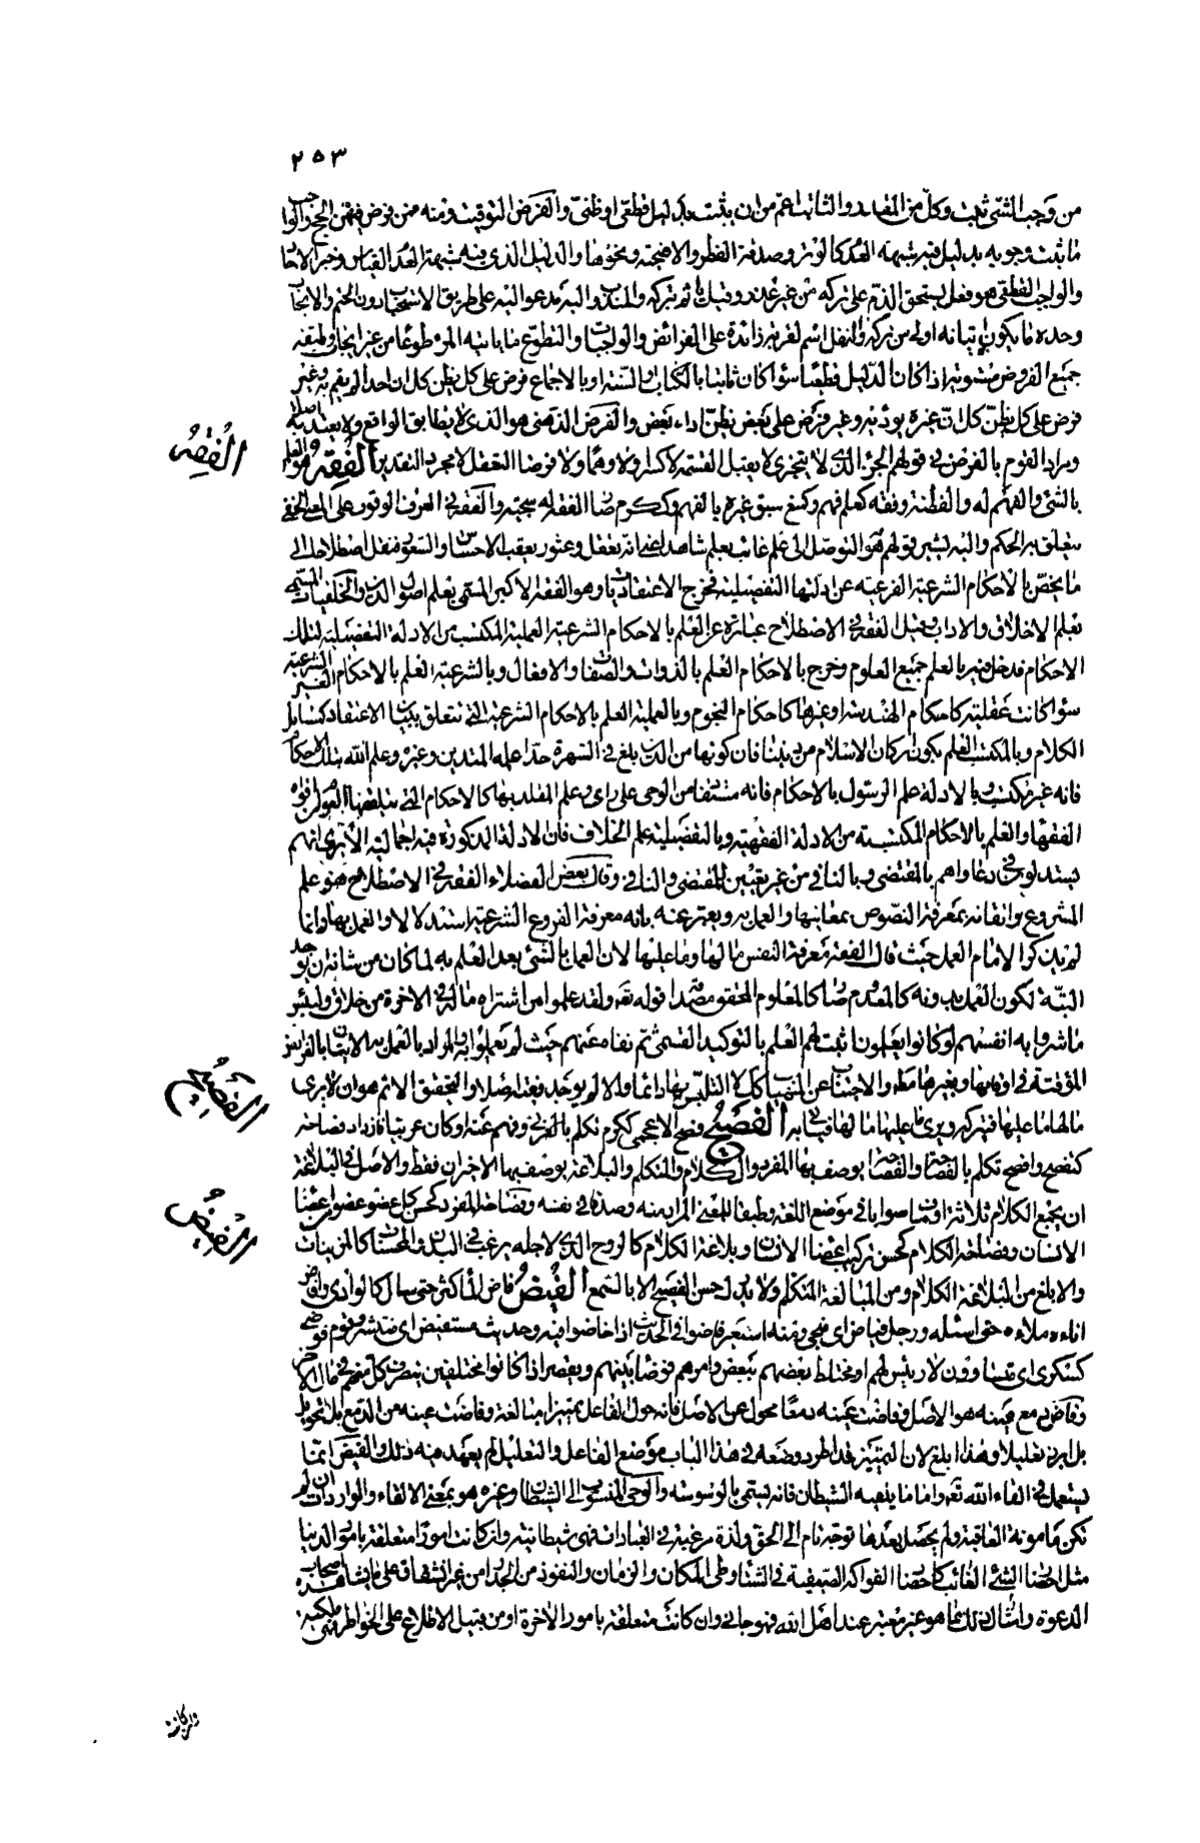 ٢٥٣
من وجب الشئ ثبت وكل من الفاسد والثابت اعم من ان يثبت بدليل قطعى او ظنى والفرض التوقيت ومنه فمن فرض فيهن الحج والواجب
ما يثبت وجوبه بدليل فيه شبهة العدم كالوتر وصدقة الفطر والاضحية ونحوها والدليل الذى فيه شبهة العدم القياس وخبر الآحاد
والواجب القطعى هو فعل يستحق الذم على تركه من غير عذر وقيل ما ثم تركه والمندوب اليه مدعو اليه على طريق الاستحباب دون الحتم والايجاب
وحده ما يكون اتيانه اولى من تركه والنفل اسم لقربة زائدة على الفرائض والواجبات والتطوع ما ياتيه المرء طوعا من غير ايجاب
جميع الفروض اذا كان الدليل قطعيا سواء كان ثابتا بالكتاب او السنة او بالاجماع فرض على كل يظن كل ان احدا لم يقم به وغير
فرض على كل يظن كل ان غيره يؤديه وغير فرض على بعض يظن اداء بعض والفرض الذهنى هو الذى لا يطابق الواقع ولا يعتد به اصلا
ومراد القوم بالفرض فى قولهم الجزء الذى لا يتجزى لا يقبل القسمة لا كسرا ولا وهما ولا فرضا التعقل لا مجرد التقدير الفقه هو العلم
بالشئ والفهم له والفطنة وفقه كعلم فهم وكمنع سبق غيره بالفهم وككرم صار الفقه له سجية والفقه فى العرف الوقوف على المعنى الخفى
يتعلق به الحكم واليه يشير قولهم هو التوصل الى علم غائب بعلم شاهد اعنى انه تعقل وعثور يعقب الاحساس والشعور فنقل اصطلاحا الى
ما يخص بالاحكام الشرعية الفرعية عن ادلتها التفصيلية فخرج الاعتقاديات وهو الفقه الاكبر المسمى بعلم اصول الدين والخلقيات المسمى
بعلم الاخلاق والآداب وقيل الفقه فى الاصطلاح عبارة عن العلم بالاحكام الشرعية العملية المكتسب من الادلة التفصيلية لتلك
الاحكام فدخل فيه بالعلم جميع العلوم وخرج بالاحكام العلم بالذوات والصفات والافعال وبالشرعية العلم بالاحكام الغير الشرعية
سواء كانت عقلية كاحكام الهندسة او غيرها كاحكام النجوم وبالعملية العلم بالاحكام الشرعية التى تتعلق ببيان الاعتقاد كمسايل
الكلام وبالمكتسب العلم بكون اركان الاسلام من ديننا فان كونها من الدين بلغ فى الشهرة حدا علمه المتدين وغيره وعلم الله بتلك الاحكام
فانه غير مكتسب وبالادلة علم الرسول بالاحكام فانه مستفاد من الوحى على راى وعلم المقلد بها كالاحكام التى يتلقنها العوام من افواه
الفقهاء والعلم بالاحكام المكتسبة من الادلة الفقهية وبالتفصيلية علم الخلاف فان الادلة المذكورة فيه اجمالية الا ترى انهم
يستدلون فى دعاواهم بالمقتضى وبالنافى من غير تعيين للمقتضى والنافى وقال بعض الفضلاء الفقه فى الاصطلاح هو علم
المشروع واتقانه بمعرفة النصوص بمعانيها والعمل به ويعبر عنه بانه معرفة الفروع الشرعية استدلالا والعمل بها وانما
لم يذكر الامام العمل حيث قال الفقه معرفة النفس ما لها وما عليها لان العمل بالشئ بعد العلم به لما كان من شانه ان يوجد
البتة تكون العلم بدونه كالمعدوم صار كالمعلوم المحقق مصداقا قوله تعه ولقد علموا لمن اشتراه ما له فى الآخرة من خلاق ولبئس
ما شروا به انفسهم لو كانوا يعلمون اثبت لهم العلم بالتوكيد القسمى ثم نفاه عنهم حيث لم يعملوا به والمراد بالعمل به الاتيان بالفرائض
المؤقتة فى اوقاتها وبغيرها مطلقا والاجتناب عن المنهيات كل لا التلبس بها دائما والا لم يوجد فقيه اصلا والتحقيق الاتم هو ان لا يرى
ما لها ما عليها فيتركه ويرى ما عليها ما لها فياتى به الفصيح فصح الاعجمى ككرم تكلم بالعربية وفهم عنه او كان عربيا فازداد فصاحة
كتفصح وافصح تكلم بالفصاحة والفصاحة يوصف بها المفرد والكلام والمتكلم والبلاغة يوصف بها الاخيران فقط والاصل فى البلاغة
ان يجمع الكلام ثلاثة اوصاف صوابا فى موضع اللغة وطبقا للمعنى المراد منه وصدقا فى نفسه وفصاحة المفرد كحسن كل عضو عضو من اعضاء
الانسان وفصاحة الكلام كحسن تركيب اعضاء الانسان وبلاغة الكلام كالروح الذى لاجله يرغب فى البدن والمحسنات كالمزينات
والابلغ من البلاغة الكلام ومن المبالغة المتكلم ولا يدرك حسن الفصيح الا بالسمع الفيض فاض الماء كثر حتى سال كالوادى وافاض
اناءه ملأه حتى اساله ورجل فياض اى سخى ومنه استعير فاضوا فى الحديث اذا خاضوا فيه وحديث مستفيض اى منتشر وقوم فوضى
كسكرى اى متساوون لا رئيس لهم او مختلط بعضهم ببعض وامرهم فوضى بينهم وفيضا اذا كانوا مختلفين يتصرف كل منهم فى مال الآخر
وفاض دمع عينه هو الاصل وفاضت عينه دمعا محول عن الاصل فانه حول الفاعل تمييزا مبالغة وفاضت عينه من الدمع بلا تحويل
بل ابرز تعليلا وهذا ابلغ لان التمييز قد اطرد وضعه فى هذا الباب موضع الفاعل والتعليل لم يعهد فيه ذلك والفيض انما
يستعمل فى القاء الله تعه واما ما يلقيه الشيطان فانه يسمى بالوسوسة والوحى المنسوب الى الشيطان وغيره هو بمعنى الالقاء والواردات ان لم
تكن مامونة العاقبة ولم يحصل بعدها توجه تام الى الحق ولذة مرغبة فى العبادات فهى شيطانية وان كانت امورا متعلقة بامور الدنيا
مثل احضار الشئ الغائب كاحضار الفواكه الصيفية فى الشتاء وطى المكان والزمان والنفوذ من الجدار من غير انشقاق على ما يشاهده اصحاب
الدعوة وامثال ذلك مما هو غير معتبر عند اهل الله فهو جانى وان كانت متعلقة بامور الآخرة او من قبيل الاطلاع على الخواطر فهى ملكية
الفقه
الفصيح
الفيض
وان كانت